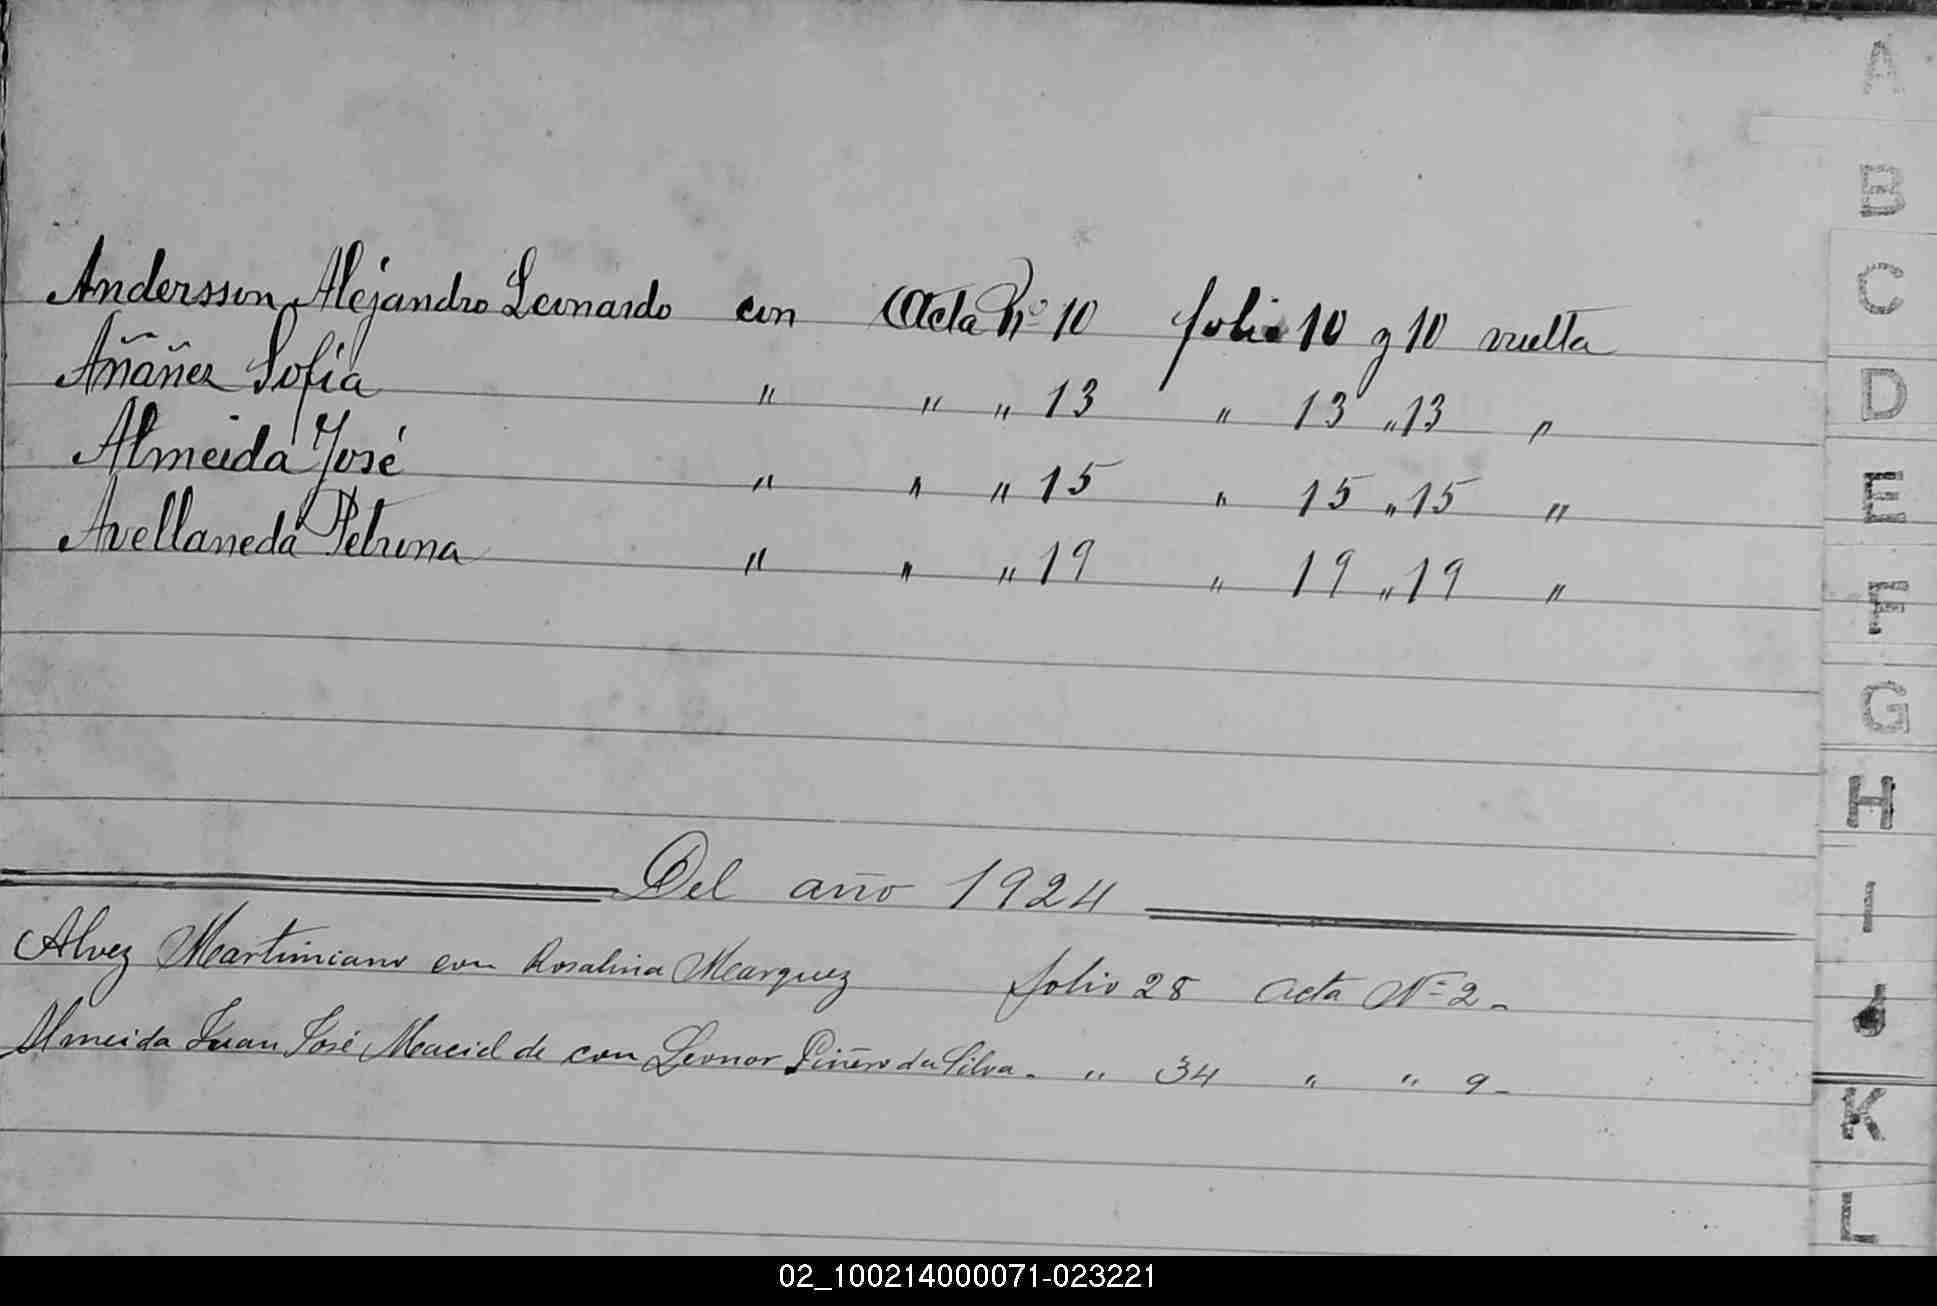 A
B
Andersson Alejandro Leonardo con Acta Nº 10 folio 10 y 10 vuelta
C
Añañez Sofía " " " 13 " 13 " 13 "
D
Almeida José " " " 15 " 15 " 15 "
E
Avellaneda Petrona " " " 19 " 19 " 19 "
F
G
H
Del año 1924
I
Alvez Martiniano con Rosalina Marquez folio 28 Acta Nº 2-
J
Almeida Juan José Maciel de con Leonor Piñero da Silva. " 34 " " 9-
K
L
02_100214000071-023221